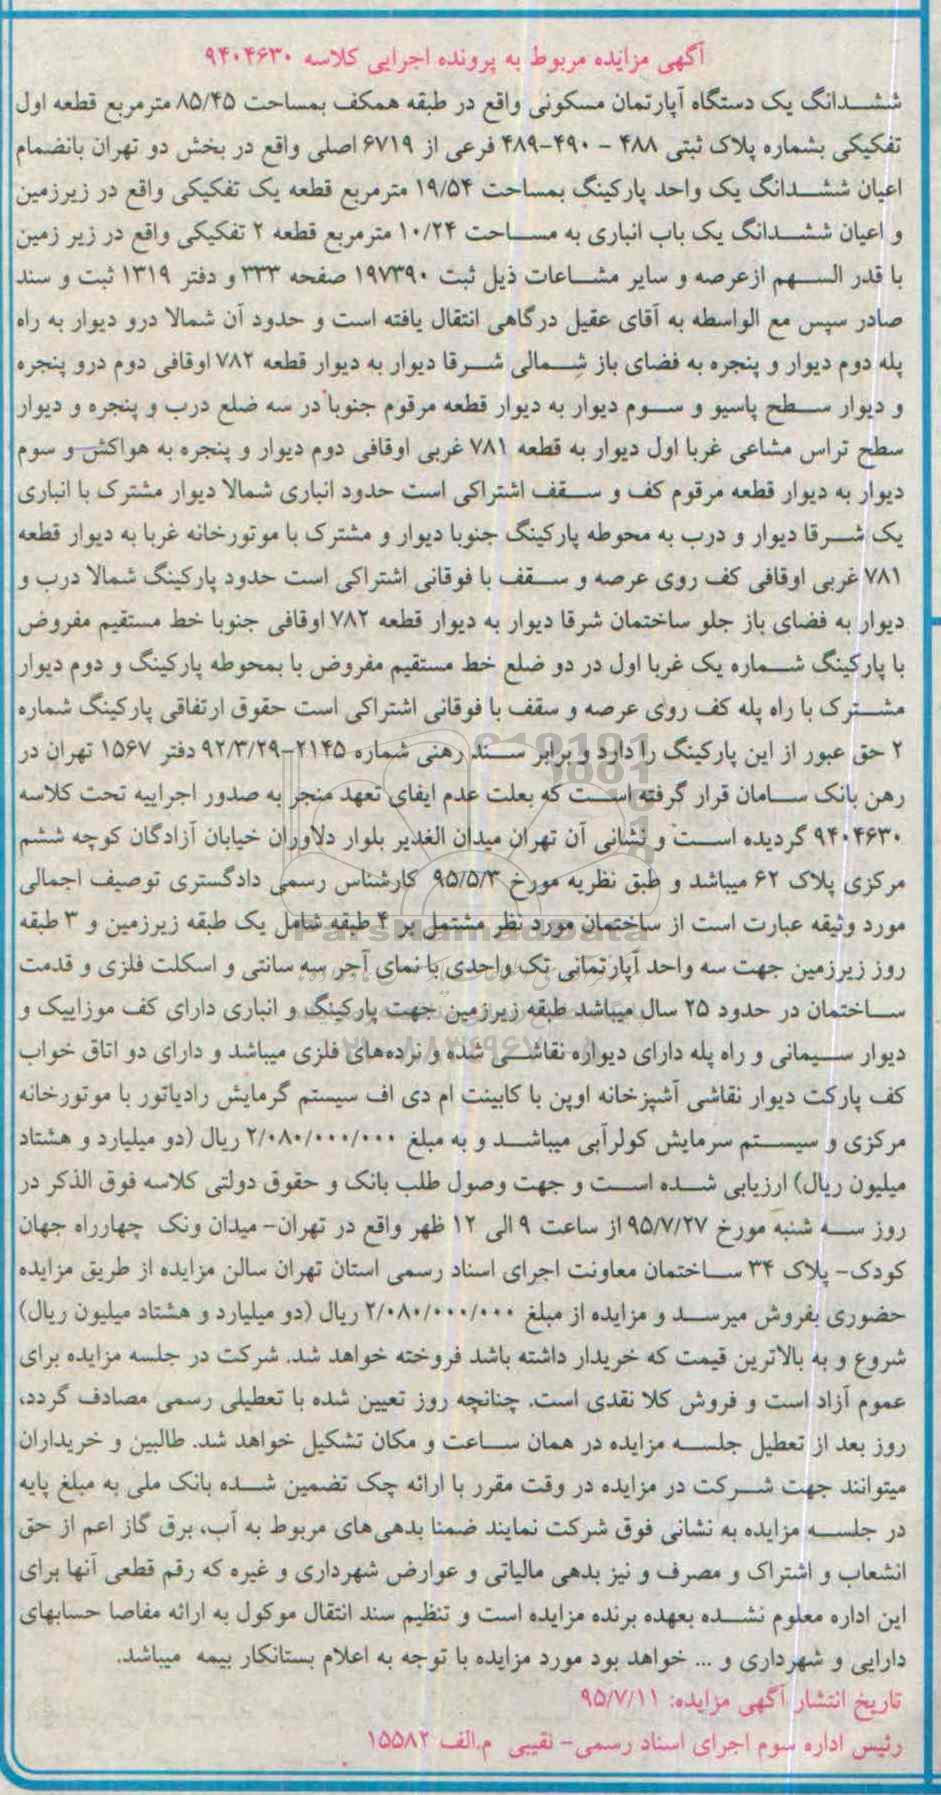 آگهی مزایده مربوط به پرونده اجرایی کلاسه ۹۴۰۴۶۳۰
ششدانگ یک دستگاه آپارتمان مسکونی واقع در طبقه همکف بمساحت ۸۵/۴۵ مترمربع قطعه اول
تفکیکی بشماره پلاک ثبتی ۴۸۸ - ۴۹۰-۴۸۹ فرعی از ۶۷۱۹ اصلی واقع در بخش دو تهران بانضمام
اعیان ششدانگ یک واحد پارکینگ بمساحت ۱۹/۵۴ مترمربع قطعه یک تفکیکی واقع در زیرزمین
و اعیان ششدانگ یک باب انباری به مساحت ۱۰/۲۴ مترمربع قطعه ۲ تفکیکی واقع در زیر زمین
با قدر السهم ازعرصه و سایر مشاعات ذیل ثبت ۱۹۷۳۹۰ صفحه ۳۳۳ و دفتر ۱۳۱۹ ثبت و سند
صادر سپس مع الواسطه به آقای عقیل درگاهی انتقال یافته است و حدود آن شمالا درو دیوار به راه
پله دوم دیوار و پنجره به فضای باز شمالی شرقا دیوار به دیوار قطعه ۷۸۲ اوقافی دوم درو پنجره
و دیوار سطح پاسیو و سوم دیوار به دیوار قطعه مرقوم جنوبا در سه ضلع درب و پنجره و دیوار
سطح تراس مشاعی غربا اول دیوار به قطعه ۷۸۱ غربی اوقافی دوم دیوار و پنجره به هواکش و سوم
دیوار به دیوار قطعه مرقوم کف و سقف اشتراکی است حدود انباری شمالا دیوار مشترک با انباری
یک شرقا دیوار و درب به محوطه پارکینگ جنوبا دیوار و مشترک با موتورخانه غربا به دیوار قطعه
۷۸۱ غربی اوقافی کف روی عرصه و سقف با فوقانی اشتراکی است حدود پارکینگ شمالا درب و
دیوار به فضای باز جلو ساختمان شرقا دیوار به دیوار قطعه ۷۸۲ اوقافی جنوبا خط مستقیم مفروض
با پارکینگ شماره یک غربا اول در دو ضلع خط مستقیم مفروض با بمحوطه پارکینگ و دوم دیوار
مشترک با راه پله کف روی عرصه و سقف با فوقانی اشتراکی است حقوق ارتفاقی پارکینگ شماره
۲ حق عبور از این پارکینگ را دارد و برابر سند رهنی شماره ۲۱۴۵-۹۲/۳/۲۹ دفتر ۱۵۶۷ تهران در
رهن بانک سامان قرار گرفته است که بعلت عدم ایفای تعهد منجر به صدور اجراییه تحت کلاسه
۹۴۰۴۶۳۰ گردیده است و نشانی آن تهران میدان الغدیر بلوار دلاوران خیابان آزادگان کوچه ششم
مرکزی پلاک ۶۲ میباشد و طبق نظریه مورخ ۹۵/۵/۳ کارشناس رسمی دادگستری توصیف اجمالی
مورد وثیقه عبارت است از ساختمان مورد نظر مشتمل بر ۴ طبقه شامل یک طبقه زیرزمین و ۳ طبقه
روز زیرزمین جهت سه واحد آپارتمانی تک واحدی با نمای آجر سه سانتی و اسکلت فلزی و قدمت
ساختمان در حدود ۲۵ سال میباشد طبقه زیرزمین جهت پارکینگ و انباری دارای کف موزاییک و
دیوار سیمانی و راه پله دارای دیواره نقاشی شده و نرده‌های فلزی میباشد و دارای دو اتاق خواب
کف پارکت دیوار نقاشی آشپزخانه اوپن با کابینت ام دی اف سیستم گرمایش رادیاتور با موتورخانه
مرکزی و سیستم سرمایش کولرآبی میباشد و به مبلغ ۲/۰۸۰/۰۰۰/۰۰۰ ریال (دو میلیارد و هشتاد
میلیون ریال) ارزیابی شده است و جهت وصول طلب بانک و حقوق دولتی کلاسه فوق الذکر در
روز سه شنبه مورخ ۹۵/۷/۲۷ از ساعت ۹ الی ۱۲ ظهر واقع در تهران- میدان ونک چهارراه جهان
کودک- پلاک ۳۴ ساختمان معاونت اجرای اسناد رسمی استان تهران سالن مزایده از طریق مزایده
حضوری بفروش میرسد و مزایده از مبلغ ۲/۰۸۰/۰۰۰/۰۰۰ ریال (دو میلیارد و هشتاد میلیون ریال)
شروع و به بالاترین قیمت که خریدار داشته باشد فروخته خواهد شد. شرکت در جلسه مزایده برای
عموم آزاد است و فروش کلا نقدی است. چنانچه روز تعیین شده با تعطیلی رسمی مصادف گردد،
روز بعد از تعطیل جلسه مزایده در همان ساعت و مکان تشکیل خواهد شد. طالبین و خریداران
میتوانند جهت شرکت در مزایده در وقت مقرر با ارائه چک تضمین شده بانک ملی به مبلغ پایه
در جلسه مزایده به نشانی فوق شرکت نمایند ضمنا بدهی‌های مربوط به آب، برق گاز اعم از حق
انشعاب و اشتراک و مصرف و نیز بدهی مالیاتی و عوارض شهرداری و غیره که رقم قطعی آنها برای
این اداره معلوم نشده بعهده برنده مزایده است و تنظیم سند انتقال موکول به ارائه مفاصا حسابهای
دارایی و شهرداری و ... خواهد بود مورد مزایده با توجه به اعلام بستانکار بیمه میباشد.
تاریخ انتشار آگهی مزایده: ۹۵/۷/۱۱
رئیس اداره سوم اجرای اسناد رسمی- نقیبی م.الف ۱۵۵۸۲